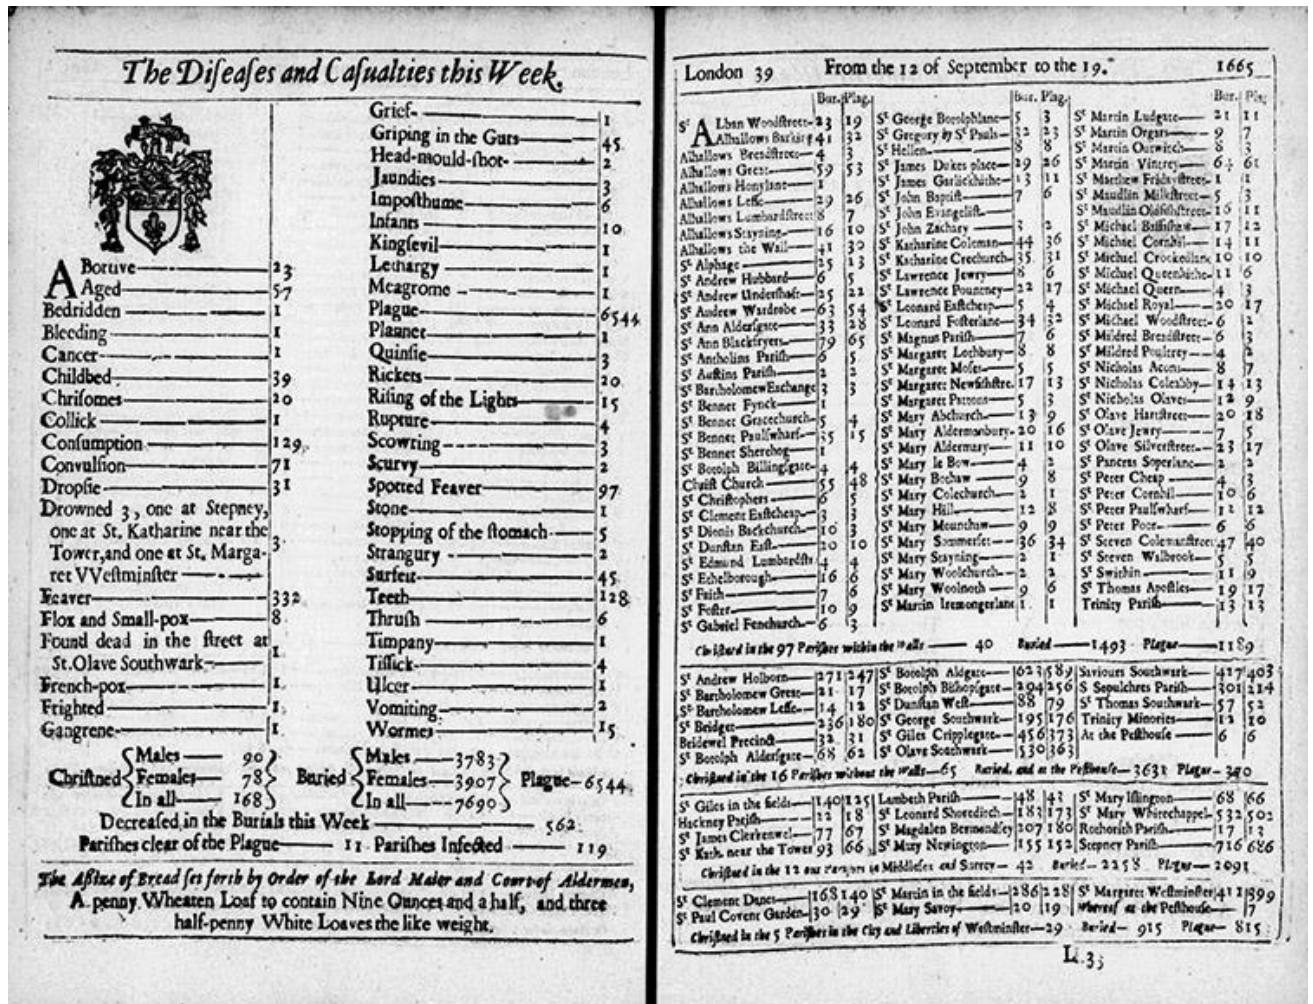 The Diſeaſes and Caſualties this Week.
ABortive 23
Aged 57
Bedridden 1
Bleeding 1
Cancer 1
Childbed 39
Chriſomes 20
Collick 1
Conſumption 129
Convulſion 71
Dropſie 31
Drowned 3, one at Stepney,
one at St. Katharine near the
Tower, and one at St. Marga-
ret VVeſtminſter 3
Feaver 332
Flox and Small-pox 8
Found dead in the ſtreet at
St. Olave Southwark 1
French-pox 1
Frighted 1
Gangrene 1
Grief 1
Griping in the Guts 45
Head-mould-ſhot 2
Jaundies 3
Impoſthume 6
Infants 10
Kingſevil 1
Lethargy 1
Meagrome 1
Plague 6544
Plannet 1
Quinſie 3
Rickets 20
Riſing of the Lights 15
Rupture 4
Scowring 3
Scurvy 2
Spotted Feaver 97
Stone 1
Stopping of the ſtomach 5
Strangury 2
Surfeit 45
Teeth 128
Thruſh 6
Timpany 1
Tiſſick 4
Ulcer 1
Vomiting 2
Wormes 15
Chriſtned Males 90 Females 78 In all 168
Buried Males 3783 Females 3907 In all 7690 Plague 6544
Decreaſed in the Burials this Week 562
Pariſhes clear of the Plague 11 Pariſhes Infected 119
The Aſſize of Bread ſet forth by Order of the Lord Maior and Court of Aldermen,
A penny Wheaten Loaf to contain Nine Ounces and a half, and three
half-penny White Loaves the like weight.
London 39 From the 12 of September to the 19. 1665
Bur. Plag.
St ALban Woodſtreet 23 19
Alhallows Barking 41 32
Alhallows Breadſtreet 4 3
Alhallows Great 59 53
Alhallows Honylane 1
Alhallows Leſſe 29 26
Alhallows Lumbardſtreet 8 7
Alhallows Stayning 16 10
Alhallows the Wall 41 30
St Alphage 25 13
St Andrew Hubbard 6 5
St Andrew Underſhaft 25 22
St Andrew Wardrobe 63 54
St Ann Alderſgate 33 28
St Ann Blackfryers 79 65
St Antholins Pariſh 6 5
St Auſtins Pariſh 2 2
St Bartholomew Exchange 3 3
St Bennet Fynck 1
St Bennet Gracechurch 5 4
St Bennet Paulſwharf 35 15
St Bennet Sherehog 1
St Botolph Billingſgate 4 4
Chriſt Church 55 48
St Chriſtophers 6 5
St Clement Eaſtcheap 3 3
St Dionis Backchurch 10 3
St Dunſtan Eaſt 20 10
St Edmund Lumbardſtr. 4 4
St Ethelborough 16 6
St Faith 7 6
St Foſter 10 9
St Gabriel Fenchurch 6 3
Bur. Plag.
St George Botolphlane 5 3
St Gregory by St Pauls 32 23
St Hellen 8 8
St James Dukes place 29 26
St James Garlickhithe 13 11
St John Baptiſt 7 6
St John Evangeliſt
St John Zachary 3 2
St Katharine Coleman 44 36
St Katharine Crechurch 35 31
St Lawrence Jewry 8 6
St Lawrence Pountney 22 17
St Leonard Eaſtcheap 5 4
St Leonard Foſterlane 34 32
St Magnus Pariſh 7 6
St Margaret Lothbury 8 8
St Margaret Moſes 5 5
St Margaret Newfiſhſtre. 17 13
St Margaret Pattons 5 3
St Mary Abchurch 13 9
St Mary Aldermanbury 20 16
St Mary Aldermary 11 10
St Mary le Bow 4 2
St Mary Bothaw 9 8
St Mary Colechurch 2 1
St Mary Hill 12 8
St Mary Mounthaw 9 9
St Mary Sommerſet 36 34
St Mary Stayning 2 1
St Mary Woolchurch 2 2
St Mary Woolnoth 9 6
St Martin Iremongerlane 1 1
Bur. Plag
St Martin Ludgate 21 11
St Martin Orgars 9 7
St Martin Outwitch 8 3
St Martin Vintrey 64 61
St Matthew Fridayſtreet 1 1
St Maudlin Milkſtreet 5 3
St Maudlin Oldfiſhſtreet 16 11
St Michael Baſſiſhaw 17 12
St Michael Cornhil 14 11
St Michael Crookedlane 10 10
St Michael Queenhithe 11 6
St Michael Quern 4 3
St Michael Royal 20 17
St Michael Woodſtreet 6 2
St Mildred Breadſtreet 6 3
St Mildred Poultrey 4 2
St Nicholas Acons 8 7
St Nicholas Coleabby 14 13
St Nicholas Olaves 12 9
St Olave Hartſtreet 20 18
St Olave Jewry 7 5
St Olave Silverſtreet 23 17
St Pancras Soperlane 2 2
St Peter Cheap 4 3
St Peter Cornhil 10 6
St Peter Paulſwharf 12 12
St Peter Poor 6 6
St Steven Colemanſtreet 47 40
St Steven Walbrook 5 5
St Swithin 11 9
St Thomas Apoſtles 19 17
Trinity Pariſh 13 13
Chriſtned in the 97 Pariſhes within the Walls 40 Buried 1493 Plague 1189
St Andrew Holborn 271 247
St Bartholomew Great 21 17
St Bartholomew Leſſe 14 12
St Bridget 236 180
Bridewel Precinct 32 31
St Botolph Alderſgate 68 62
St Botolph Aldgate 623 589
St Botolph Biſhopſgate 294 256
St Dunſtan Weſt 88 79
St George Southwark 195 176
St Giles Cripplegate 456 373
St Olave Southwark 530 363
Saviours Southwark 427 403
S Sepulchres Pariſh 301 214
St Thomas Southwark 57 52
Trinity Minories 12 10
At the Peſthouſe 6 6
Chriſtned in the 16 Pariſhes without the Walls 65 Buried, and at the Peſthouſe 3631 Plague
St Giles in the fields 140 125
Hackney Pariſh 22 18
St James Clerkenwel 77 67
St Kath. near the Tower 93 66
Lambeth Pariſh 48 43
St Leonard Shoreditch 183 173
St Magdalen Bermondſey 207 180
St Mary Newington 155 152
St Mary Iſlington 68 66
St Mary Whitechappel 532 502
Rothorith Pariſh 17 13
Stepney Pariſh 716 686
Chriſtned in the 12 out Pariſhes in Middleſex and Surrey 42 Buried 2258 Plague 2091
St Clement Danes 168 140
St Paul Covent Garden 30 29
St Martin in the fields 286 228
St Mary Savoy 20 19
St Margaret Weſtminſter 411 399
Whereof at the Peſthouſe 7
Chriſtned in the 5 Pariſhes in the City and Liberties of Weſtminſter 29 Buried 915 Plague 815